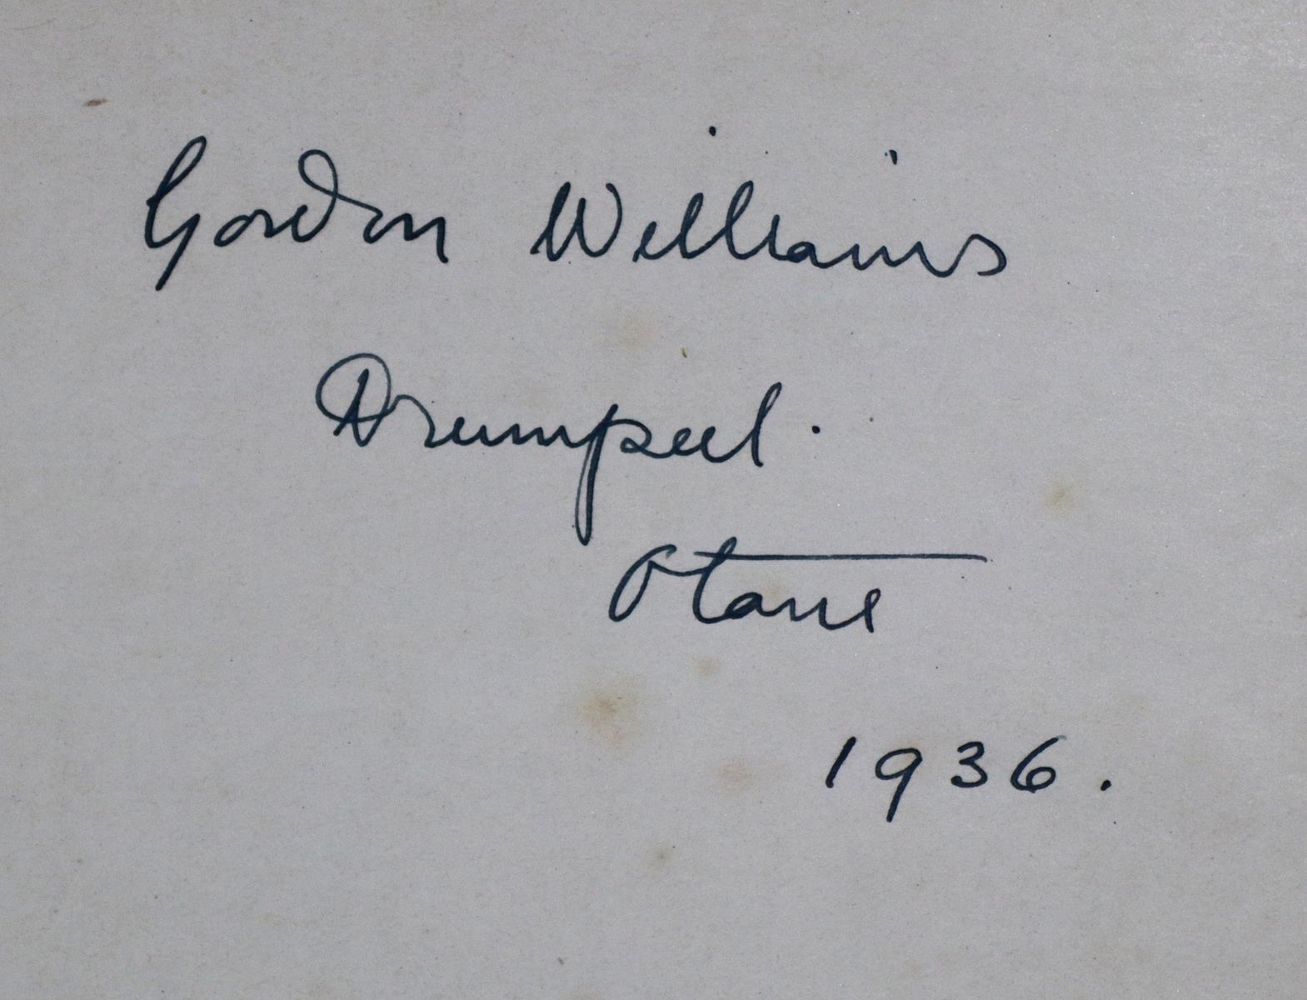 Gordon Williams
Drumpeel.
Otane
1936.